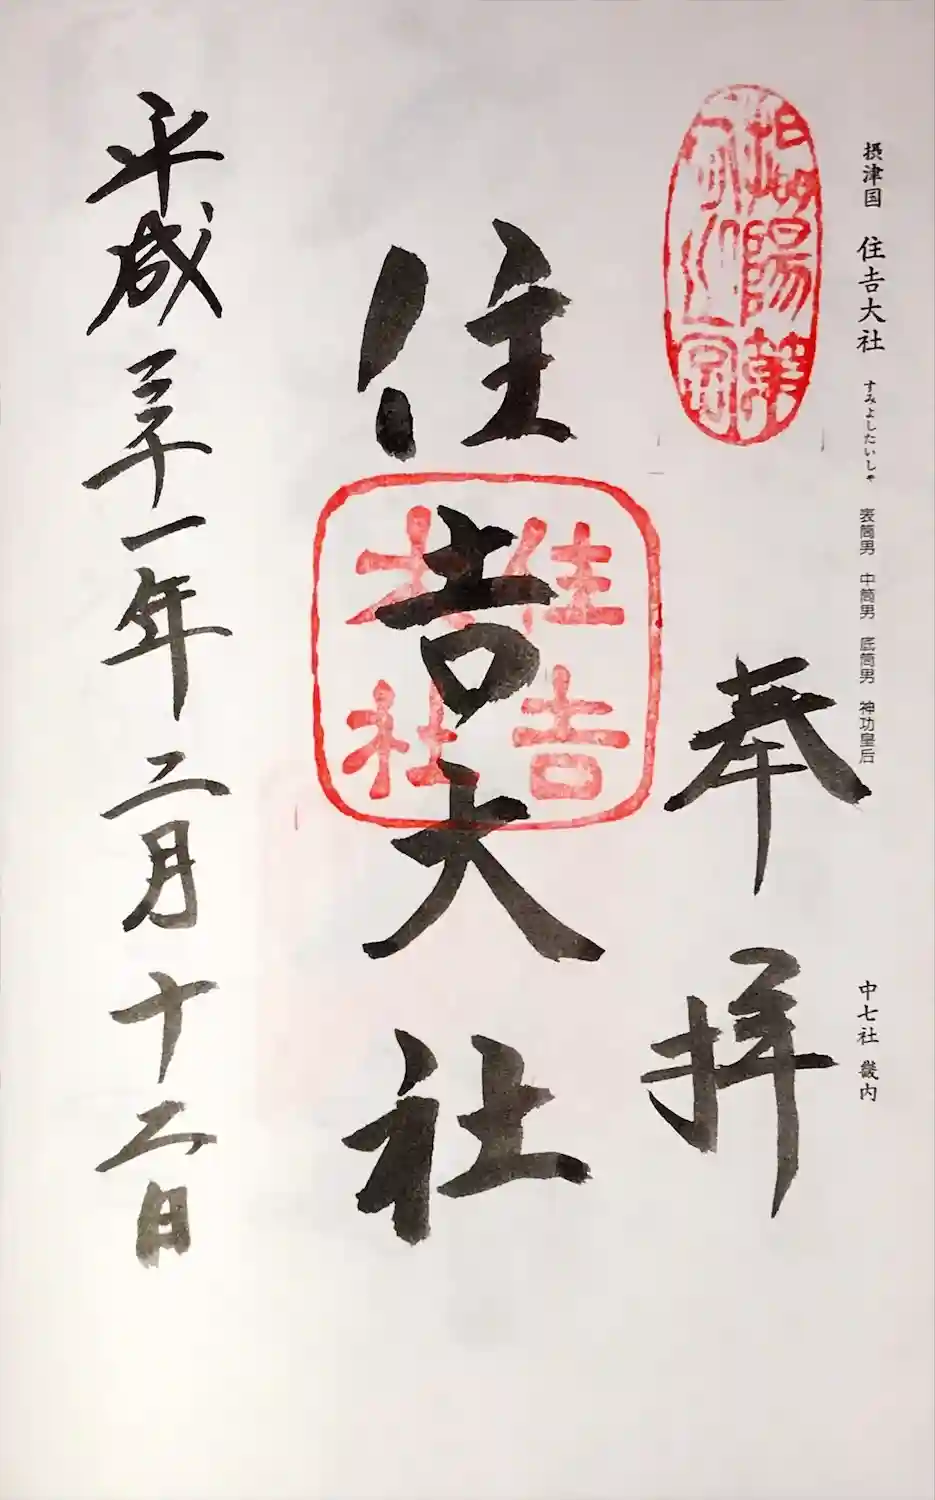 摂津国 住吉大社 すみよしたいしゃ 表筒男 中筒男 底筒男 神功皇后 中七社 畿内
奉拝
住吉大社
住吉
大社
平成三十一年二月十二日